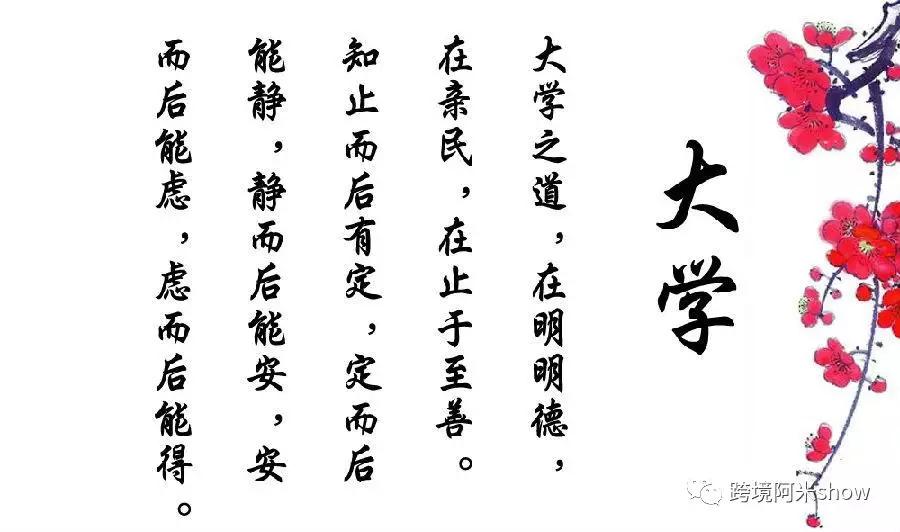 大学
大学之道，在明明德，
在亲民，在止于至善。
知止而后有定，定而后
能静，静而后能安，安
而后能虑，虑而后能得。
跨境阿米show